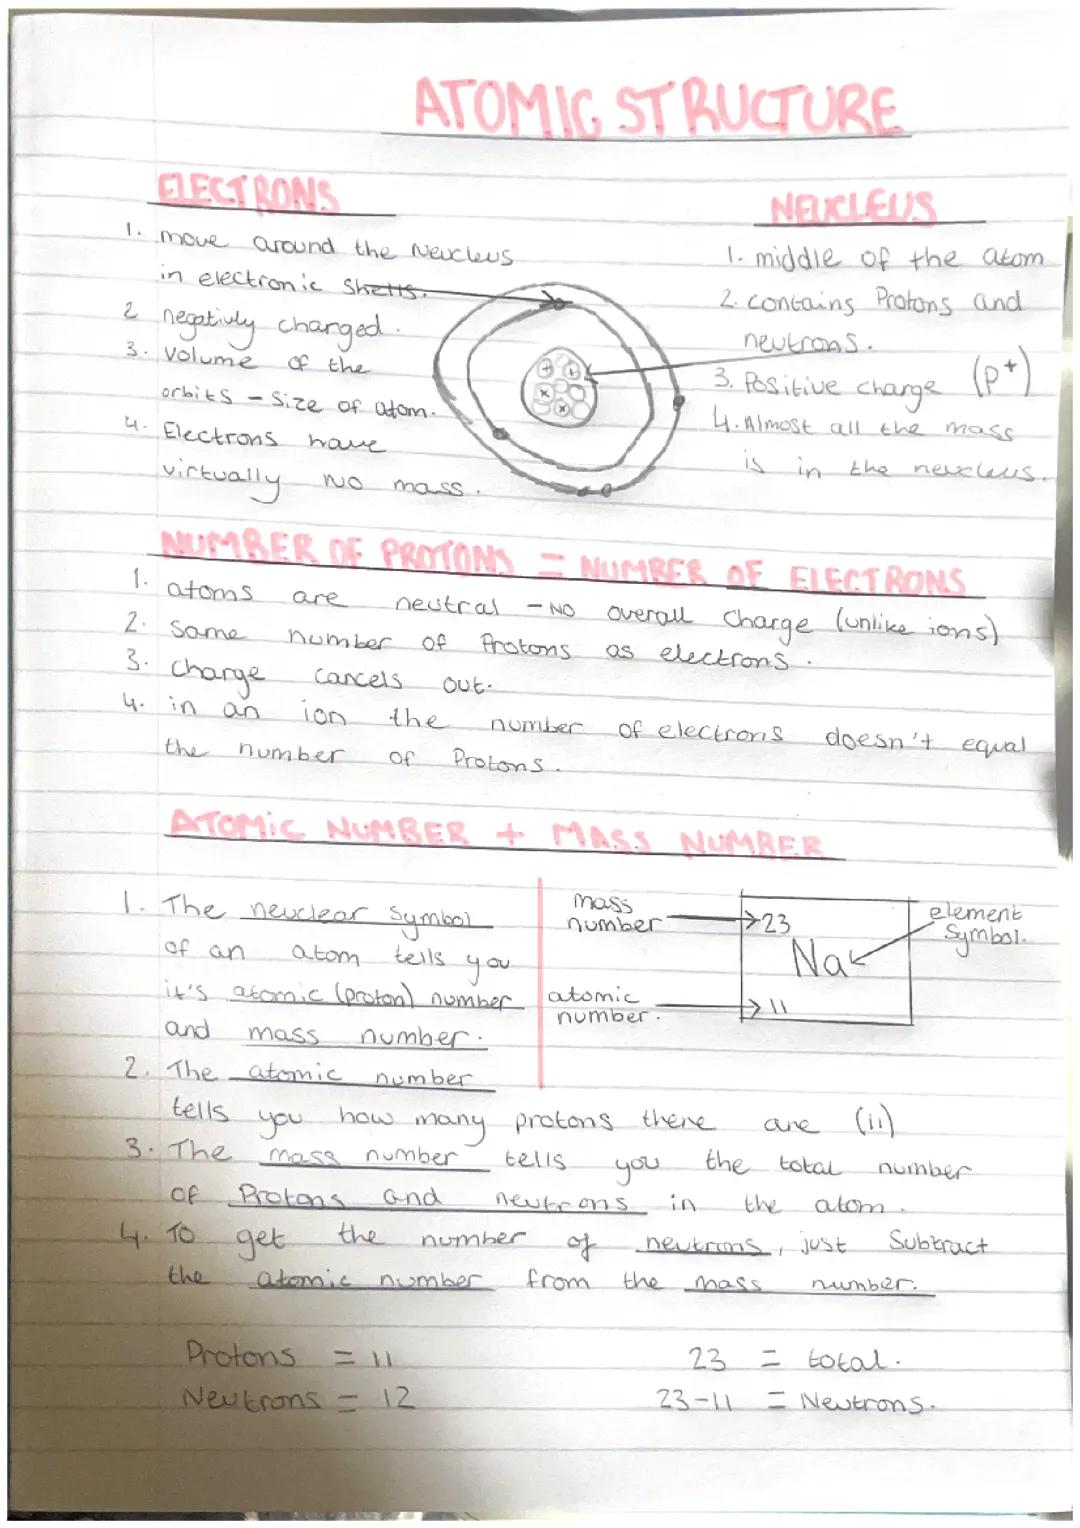 ATOMIC STRUCTURE
ELECTRONS
1. move around the Neucleus
in electronic shells.
2 negativly charged.
3. Volume of the
orbits - Size of atom.
4. Electrons have
virtually no mass.
NEUCLEUS
1. middle of the atom
2. contains Protons and
neutrons.
3. Positive charge (p+)
4. Almost all the mass
is in the neucleus.
NUMBER OF PROTONS = NUMBER OF ELECTRONS
1. atoms are neutral - NO overall charge (unlike ions)
2. Same number of Protons as electrons.
3. Charge cancels out.
4. in an ion the number of electrons doesn't equal
the number of Protons.
ATOMIC NUMBER + MASS NUMBER
1. The neuclear symbol
of an atom tells you
it's atomic (proton) number
and mass number.
mass
number
23
Na
element
Symbol.
atomic
number.
11
2. The atomic number
tells you how many protons there are (11)
3. The mass number tells you the total number
of Protons and neutrons in the atom.
4. To get the number of neutrons, just Subtract
the atomic number from the mass number.
Protons = 11
Neutrons = 12
23 = total.
23-11 = Neutrons.